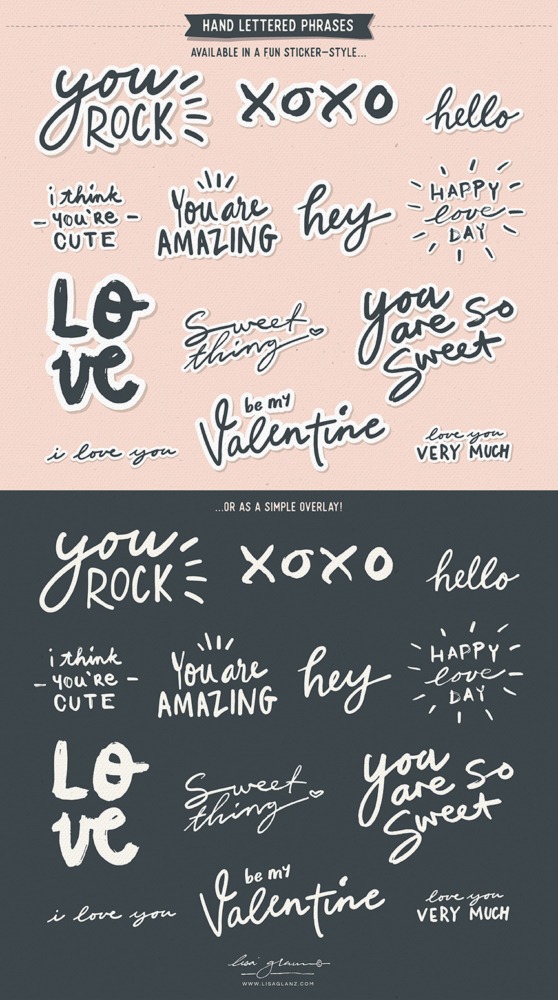 HAND LETTERED PHRASES
AVAILABLE IN A FUN STICKER-STYLE...
you
ROCK
XOXO
hello
i think
-you're-
CUTE
You are
AMAZING
hey
HAPPY
love
DAY
LO
ve
Sweet
thing
you
are so
Sweet
i love you
be my
Valentine
love you
VERY MUCH
...OR AS A SIMPLE OVERLAY!
you
ROCK
XOXO
hello
i think
-you're-
CUTE
You are
AMAZING
hey
HAPPY
love
DAY
LO
ve
Sweet
thing
you
are so
Sweet
i love you
be my
Valentine
love you
VERY MUCH
lisa glanz
WWW.LISAGLANZ.COM